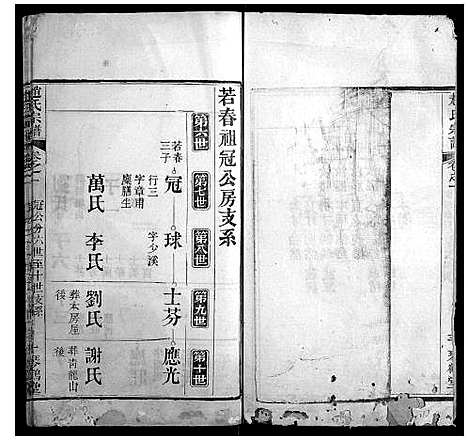 若春祖冠公房支系
第六世
第七世
第八世
第九世
第十世
若春三子
冠
行三
字章甫
廩膳生
萬氏
球
字少溪
李氏
士芬
劉氏
葬本房屋後
應光
謝氏
葬青龍山後
趙氏宗譜
卷之一
冠公分六世至十世支系
琴鶴堂
趙氏宗譜
卷之一